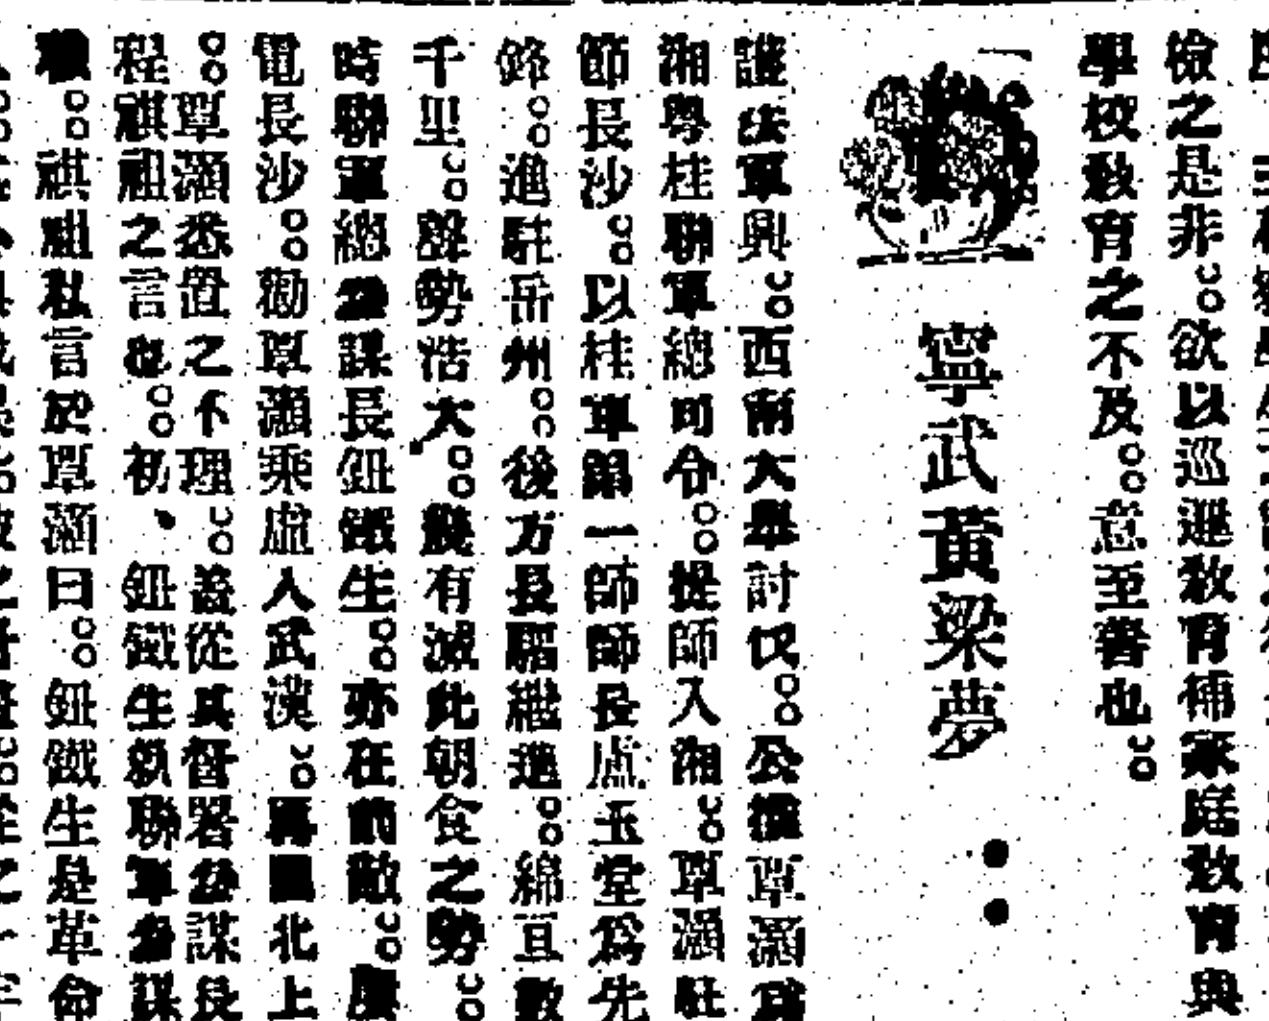 檢之是非。欲以巡邏教育補家庭教育與
學校教育之不及。意至善也。
一
寧武黃粱夢
護法軍興。西南大舉討伐。公推覃灝為
湘粵桂聯軍總司令。提師入湘。覃灝駐
節長沙。以桂軍第一師師長盧玉堂爲先
鋒。進駐岳州。後方長驅繼進。綿亘數
千里。聲勢浩大。幾有滅此朝食之勢。
時聯軍總參謀長鈕鐵生。亦在前敵。屢
電長沙。勸覃灝乘虛入武漢。再圖北上
。覃灝悉置之不理。蓋從其督署參謀長
程祺祖之言也。初、鈕鐵生就聯軍參謀
職。祺祖私言於覃灝曰。鈕鐵生是革命